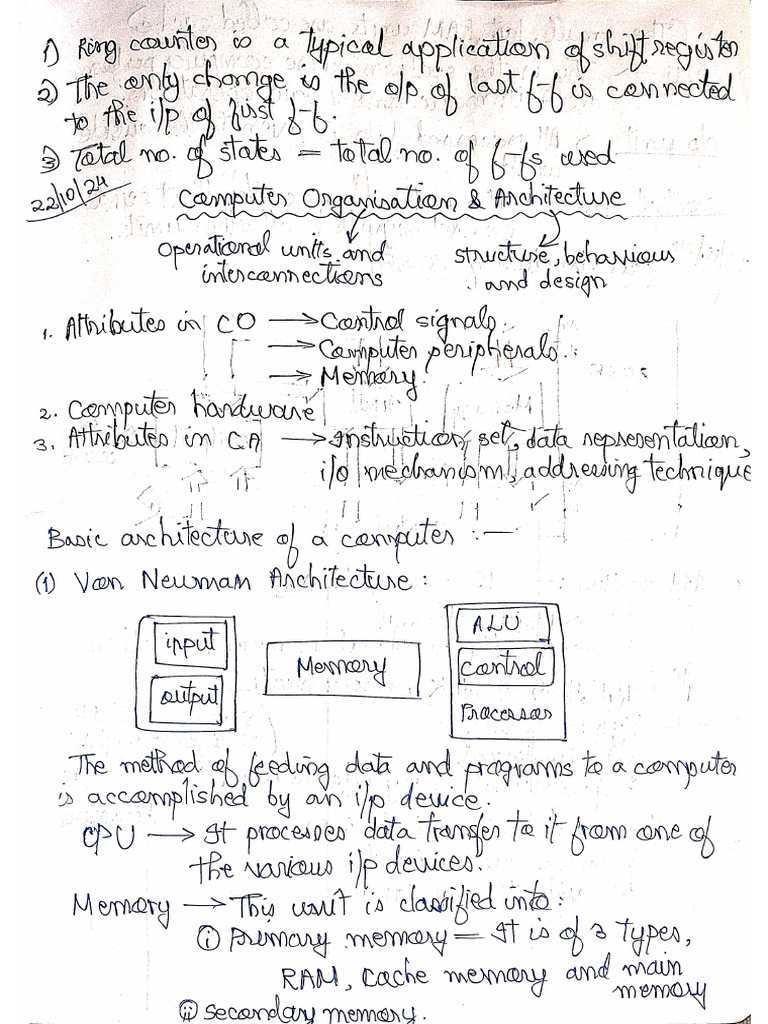 1) Ring counter is a typical application of shift register
2) The only change is the o/p of last f-f is connected
to the i/p of first f-f.
3) Total no. of states = total no. of f-fs used
22/10/24
Computer Organisation & Architecture
Operational units and
interconnections
structure, behaviour
and design
1. Attributes in CO → Control signals.
→ Computer peripherals.
→ Memory.
2. Computer hardware
3. Attributes in CA → Instruction set, data representation,
i/o mechanism, addressing technique
Basic architecture of a computer :—
(1) Van Neuman Architecture :
input
output
Memory
ALU
Control
Processor
The method of feeding data and programs to a computer
is accomplished by an i/p device.
CPU → It processes data transfer to it from one of
the various i/p devices.
Memory → This unit is classified into:
(i) Primary memory = It is of 3 types,
RAM, Cache memory and main
memory
(ii) secondary memory.